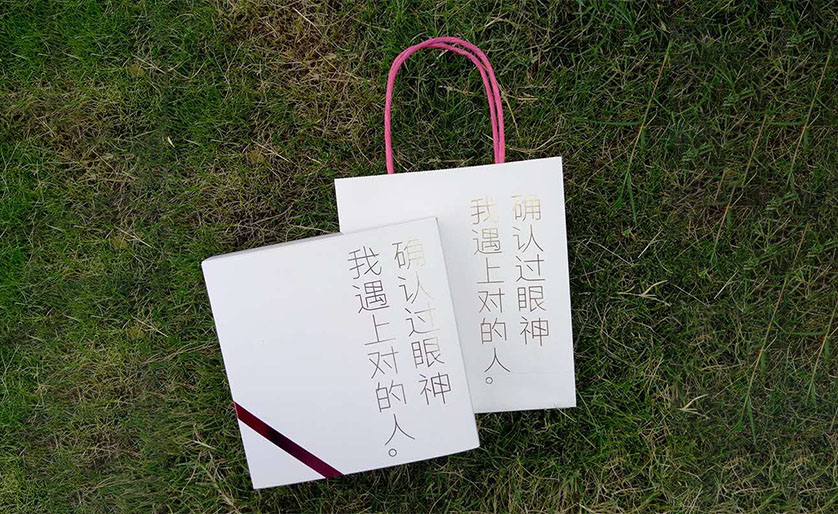 确认过眼神
我遇上对的人。
确认过眼神
我遇上对的人。